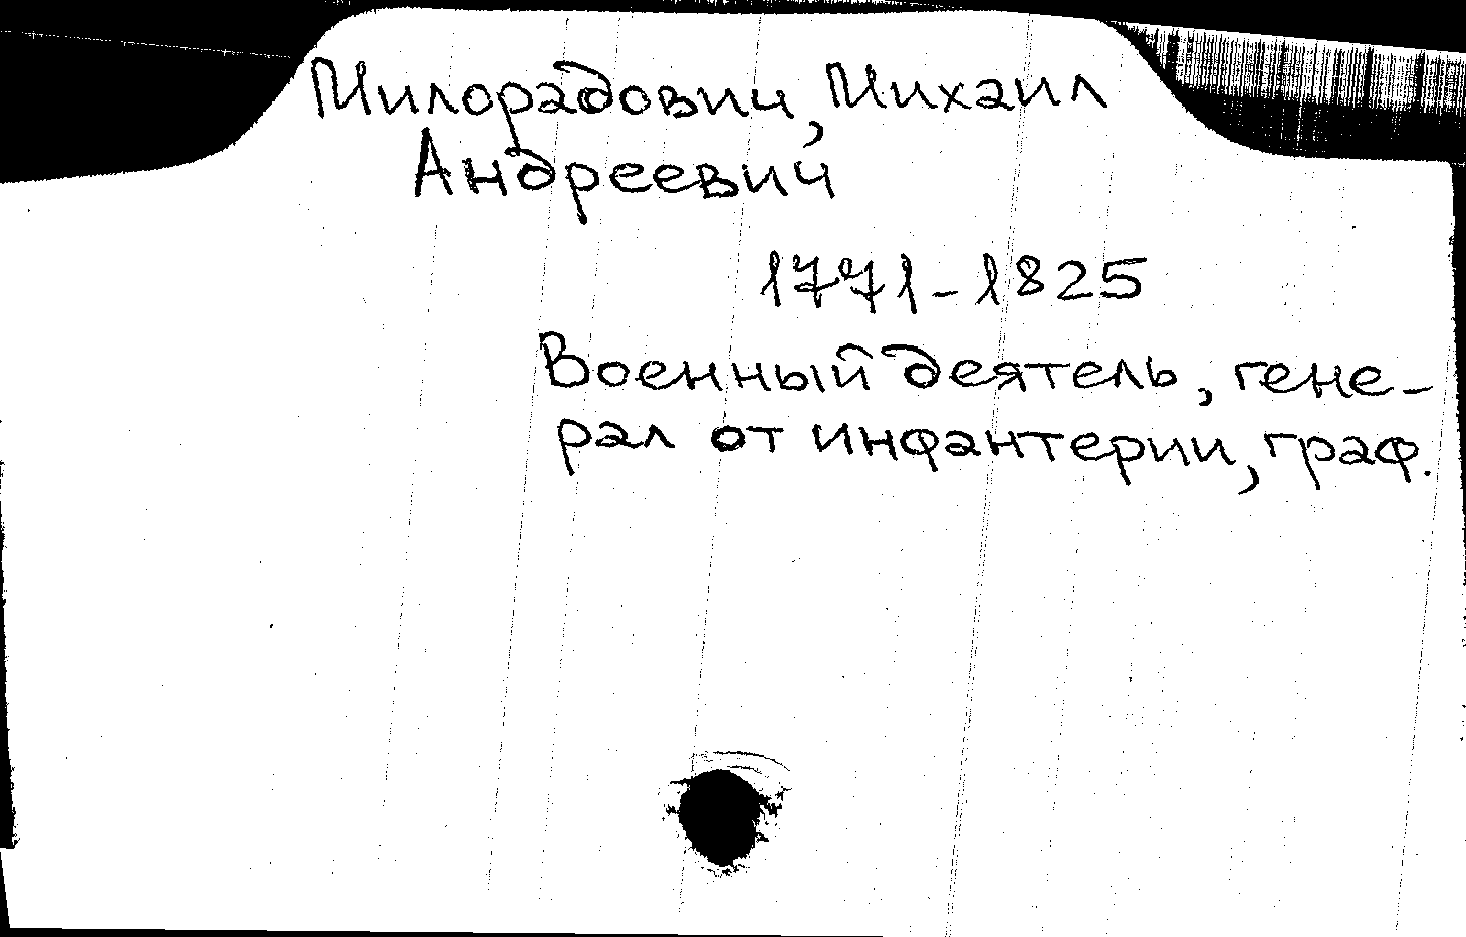 Милорадович, Михаил
Андреевич
1771-1825
Военный деятель, гене-
рал от инфантерии, граф.